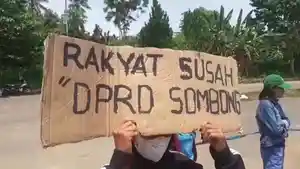 RAKYAT SUSAH
"DPRD SOMBONG